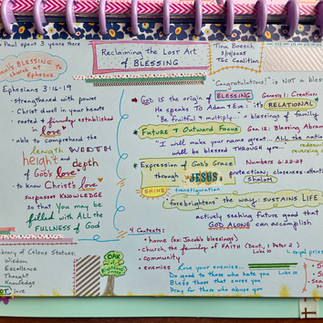 Paul spent 3 years there
Reclaiming the Lost Art
of BLESSING
Tina Boesch
3/5/25
TGC Coalition
BLESSING to
church at
Ephesus
"Congratulations" is NOT a
Ephesians 3:16-19
- strengthened with power
- Christ dwell in your hearts
- rooted & firmly established
in love
- able to comprehend the
length WIDTH
height and depth
of God's love
- to know Christ's love
surpasses KNOWLEDGE
so that You may be
filled with ALL the
FULLNESS of GOD
God is the origin of BLESSING Genesis 1: Creation
He speaks TO Adam & Eve: it's RELATIONAL
"Be fruitful & multiply." - blessing of
Future & Outward Focus Gen. 12: Blessing
"I will make your name great. ALL the
will be BLESSED through YOU."
Expression of God's Grace Numbers 6:22-27
through JESUS protection; closeness
Shalom
SHINE transfiguration
"forebrightens" the way: SUSTAINS LIFE
actively seeking future good that
GOD ALONE can accomplish
4 Contexts:
- home (ex: Jacob's blessings)
- church, the family of FAITH (Deut., 1 Peter 2)
- community
- enemies Love your enemies...
Do good to those who hate you
Bless those that curse you
Pray for those who abuse you
Library of Celsus Statues:
Wisdom
Excellence
Thought
Knowledge
NOT love
OAK
of
Righteousness